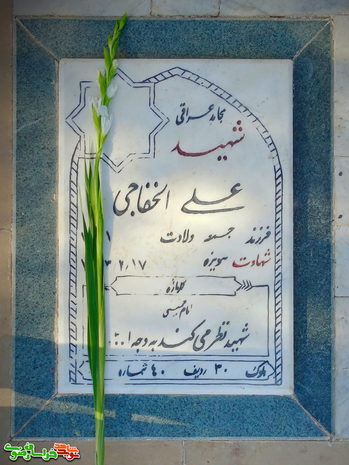 مجاهد عراقی
شهید
علی الخفاجی
فرزند جمعه ولادت ۱
شهادت هویزه ۳/۲/۱۷
گلزار
امام خمینی
شهید نظر می کند به وجه ا...
بلوک ۳۰ ردیف ۴۰ شماره